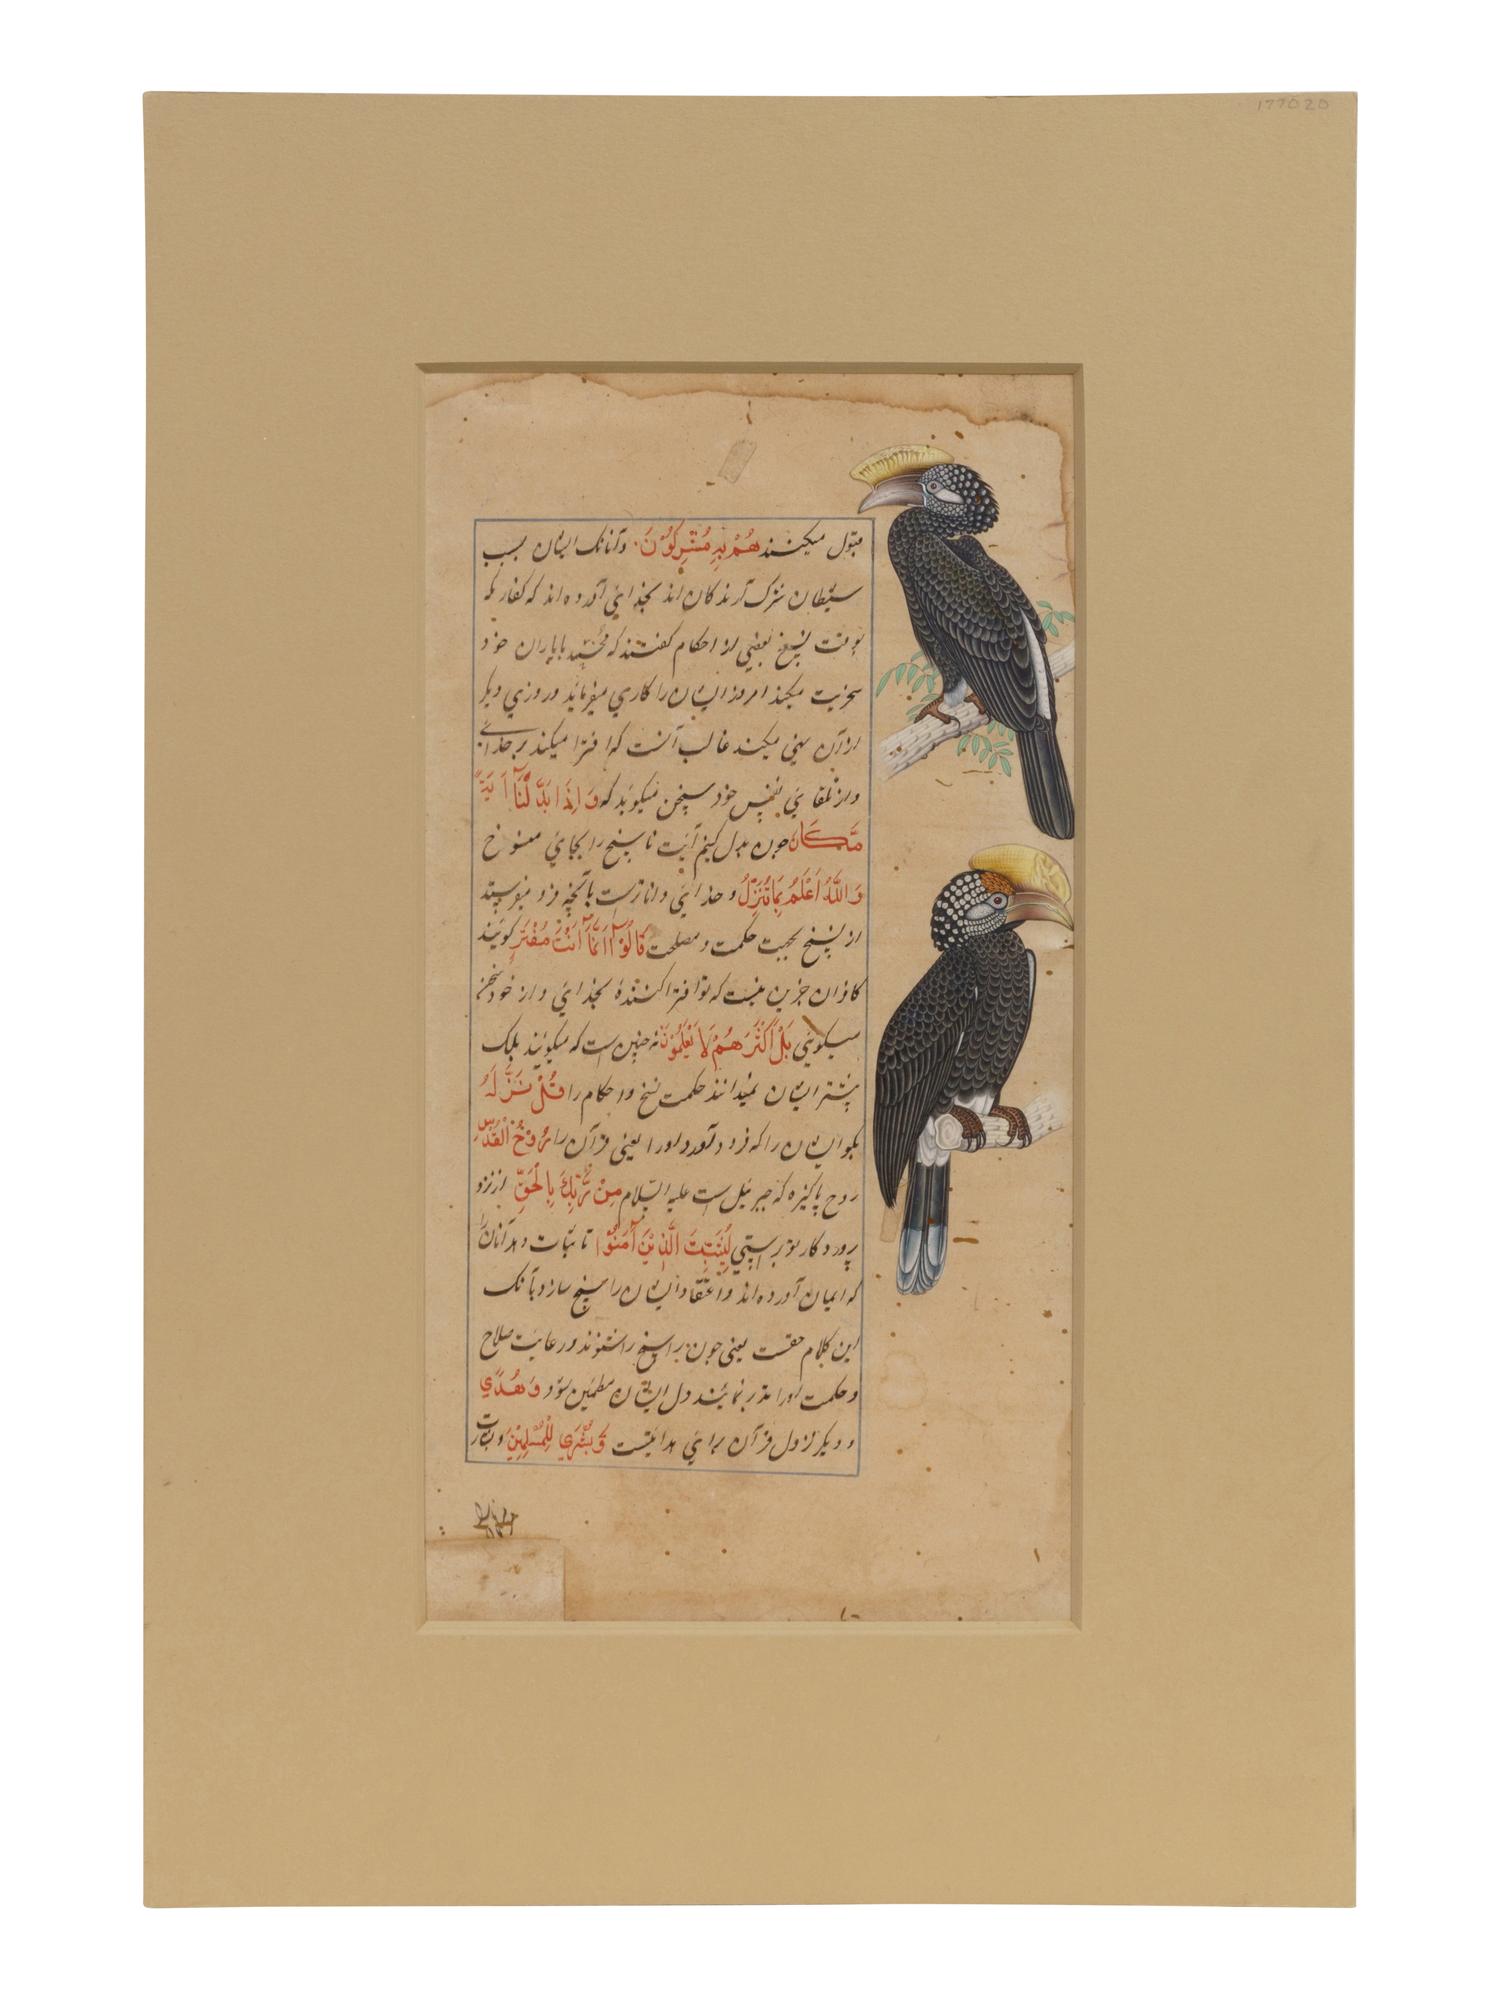 177020
قبول میکنند هُمْ بِهِ مُشْرِكُوْنَ و آنانک ایشان بسبب
شیطان شرک آرندکان اند بخدائی آورده اند که کفار مکه
بوقت نسخ بعضی از احکام کفتند که محمّد با یاران خود
سخریت میکند امروز ایشان را کاری میفرماید و روزی دیکر
از آن نهی میکند غالب آنست که افترا میکند بر خدائی
و از تلقائی نفس خود سخن میکوید که وَ اِذَا بَدَّ لْنَآ اٰ يَةً
مَّكَانَ چون بدل کنیم آیت ناسخ را بجائی منسوخ
وَ اللّٰهُ اَعْلَمُ بِمَا يُنَزِّلُ و خدائی داناترست بآنچه فرو میفرستد
از نسخ بجهت حکمت و مصلحت قَالُوْٓا اِنَّمَآ اَنْتَ مُفْتَرٍ کویند
کافران جزین نیست که تو افترا کنندهٔ بخدائی و از خود سخن
میکوئی بَلْ اَكْثَرُ هُمْ لَا يَعْلَمُوْنَ نه چنین است که میکویند بلک
بیشتر ایشان نمیدانند حکمت نسخ و احکام را قُلْ نَزَّ لَهُ
بکو ایشان را که فرود آورد او را یعنی قرآن را رُوْحُ الْقُدُسِ
روح پاکیزه که جبرئیل است علیه السّلام مِنْ رَّبِّكَ بِالْحَقِّ از نزد
پرورد کار تو براستی لِيُثَبِّتَ الَّذِيْنَ اٰمَنُوْا تا ثبات دهد آنان را
که ایمان آورده اند و اعتقاد ایشان راسخ سازد بآنک
این کلام حقست یعنی چون ناسخ را شنوند و رعایت صلاح
و حکمت او را تدبر نمایند دل ایشان مطمئن شود وَ هُدًي
و دیکر نزول قرآن برائی هدایتست وَّ بُشْرٰي لِلْمُسْلِمِيْنَ و بشارت